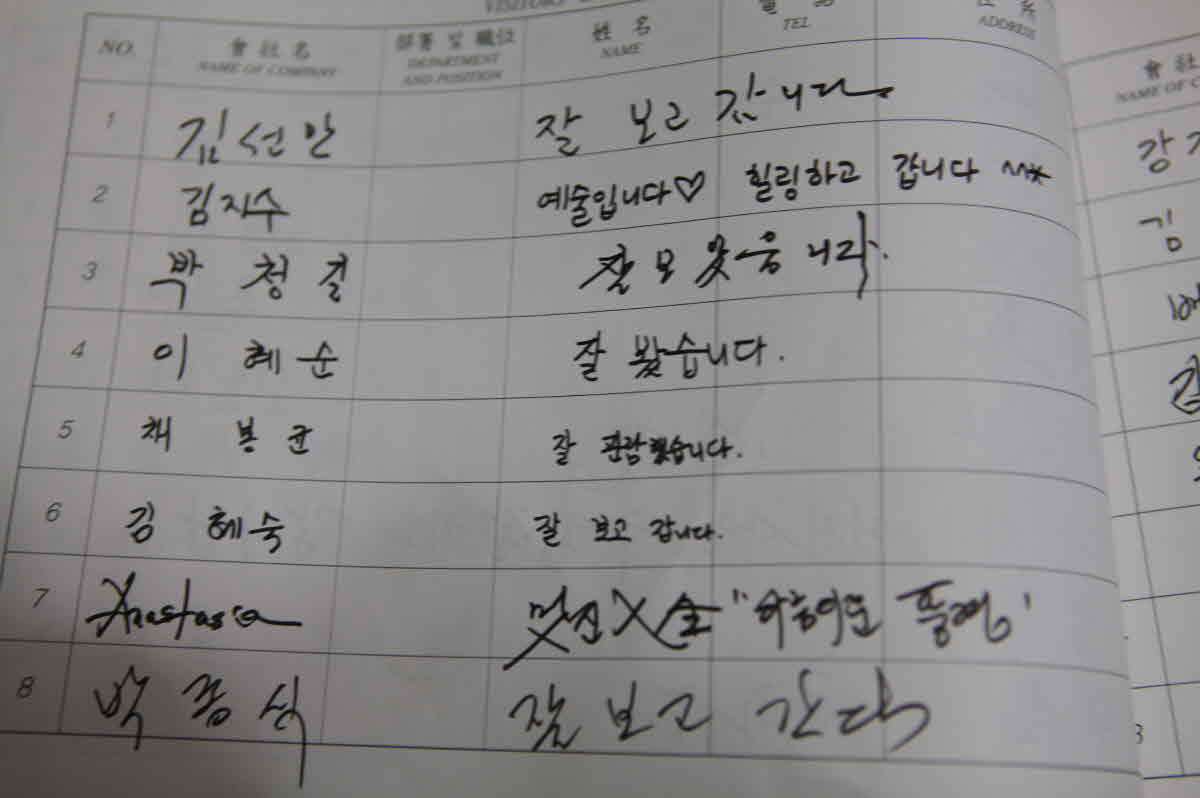 VISITORS
NO. 會社名 部署 및 職位 姓名 電話 住所
NAME OF COMPANY DEPARTMENT AND POSITION NAME TEL ADDRESS
1 김선만 잘 보고 갑니다
2 김지수 예술입니다♡ 힐링하고 갑니다 ^^*
3 박청길 잘 보았읍니다.
4 이혜순 잘 봤습니다.
5 채봉균 잘 관람했습니다.
6 김혜숙 잘 보고 갑니다.
7 Anastasia 멋진
8 박종식 잘 보고 간다
會社
NAME OF C
강
김